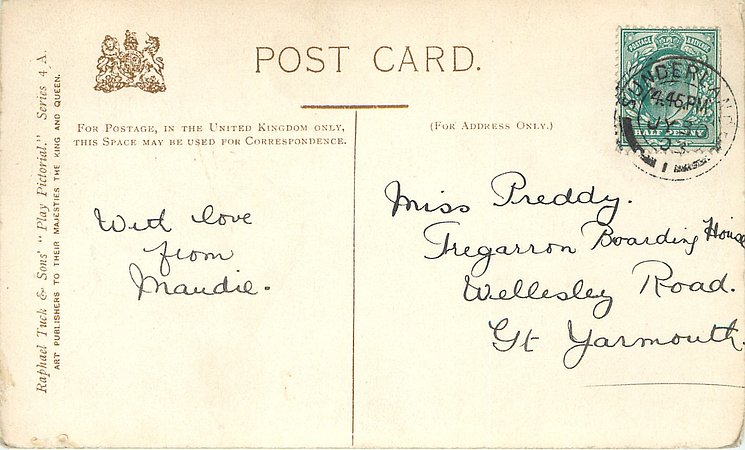 POST CARD.
FOR POSTAGE, IN THE UNITED KINGDOM ONLY,
THIS SPACE MAY BE USED FOR CORRESPONDENCE.
(FOR ADDRESS ONLY.)
Raphael Tuck & Sons' "Play Pictorial." Series 4 A.
ART PUBLISHERS TO THEIR MAJESTIES THE KING AND QUEEN.
With love
from
Maudie.
Miss Preddy.
Tregarron Boarding House
Wellesley Road.
Gt Yarmouth.
POSTAGE
HALF PENNY
SUNDERLAND
4.45.PM
JY
03